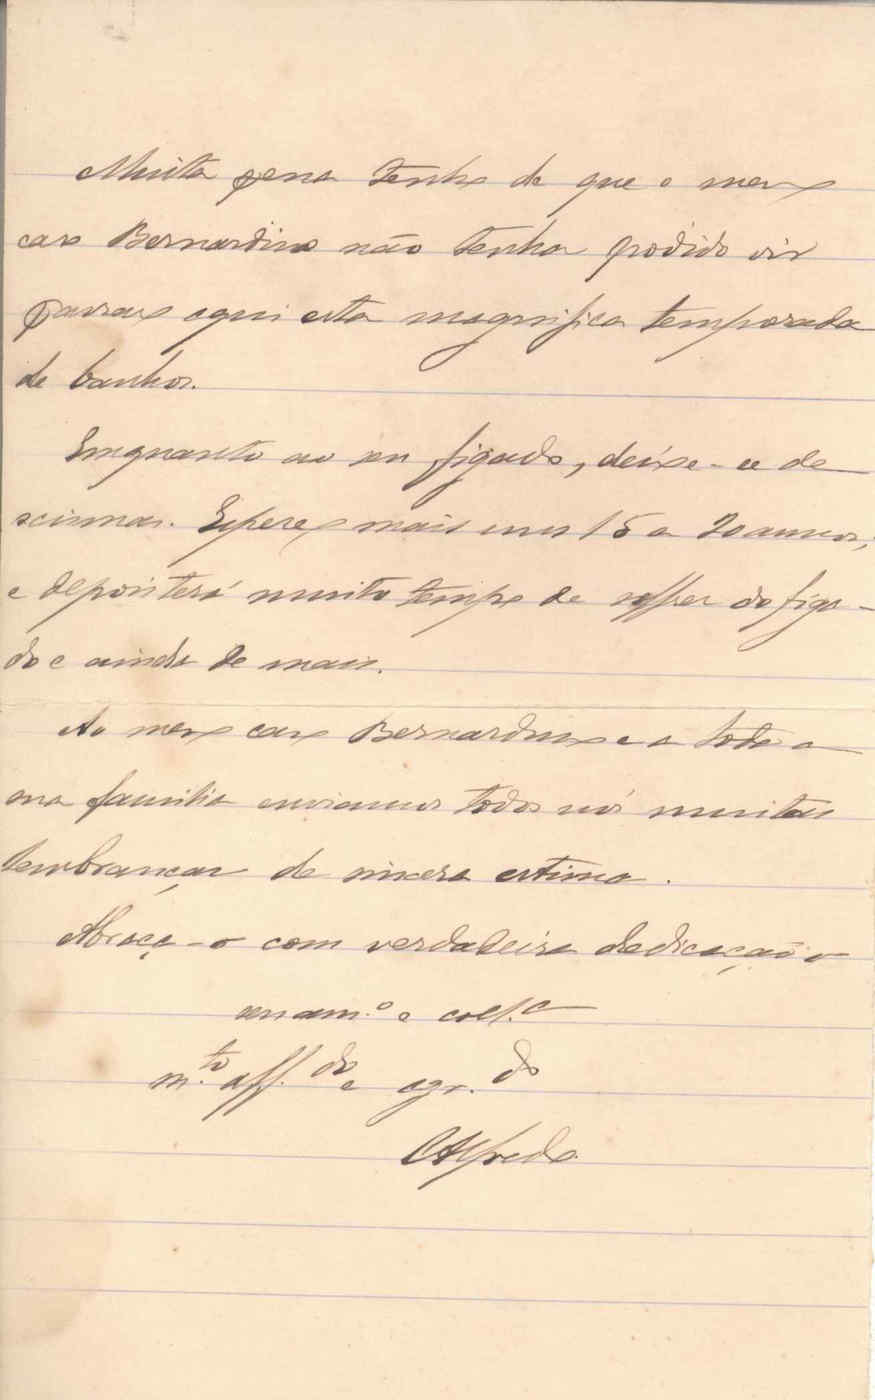 Muita pena tenho de que o meu
caro Bernardino não tenha podido vir
passar aqui esta magnifica temporada
de banhos.
Emquanto ao seu figado, deixe-se de
scismas. Espere mais uns 15 a 20 annos,
e depois terá muito tempo de soffrer do figa-
do e ainda de mais.
Ao meu caro Bernardino e a toda a
sua familia enviamos todos nós muitas
lembranças de sincera estima.
Abraça-o com verdadeira dedicação o
seu am.º e coll.ª
m.to aff.do e agr.do
Alfredo